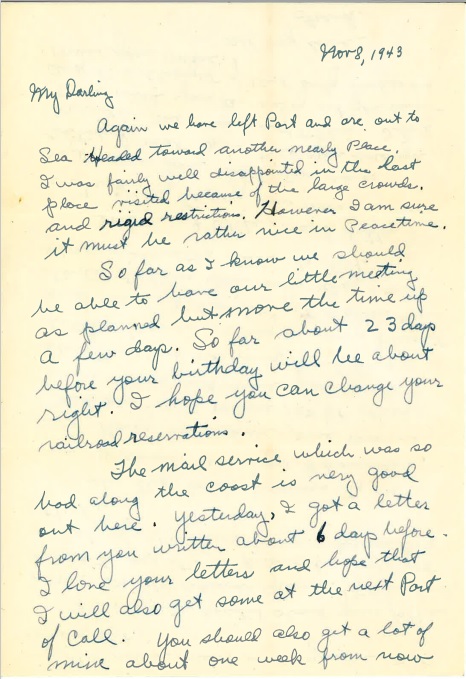 Nov 8, 1943
My Darling
Again we have left Port and are out to
Sea Headed toward another nearly Place.
I was fairly well disappointed in the last
place visited because of the large crowds.
and rigid restrictions. However I am sure
it must be rather nice in Peacetime.
So far as I know we should
be able to have our little meeting
as planned but move the time up
a few days. So far about 23 day
before your birthday will be about
right. I hope you can change your
railroad reservations.
The mail service which was so
bad along the coast is very good
out here. Yesterday, I got a letter
from you written about 6 days before.
I love your letters and hope that
I will also get some at the next Port
of Call. You should also get a lot of
mine about one week from now